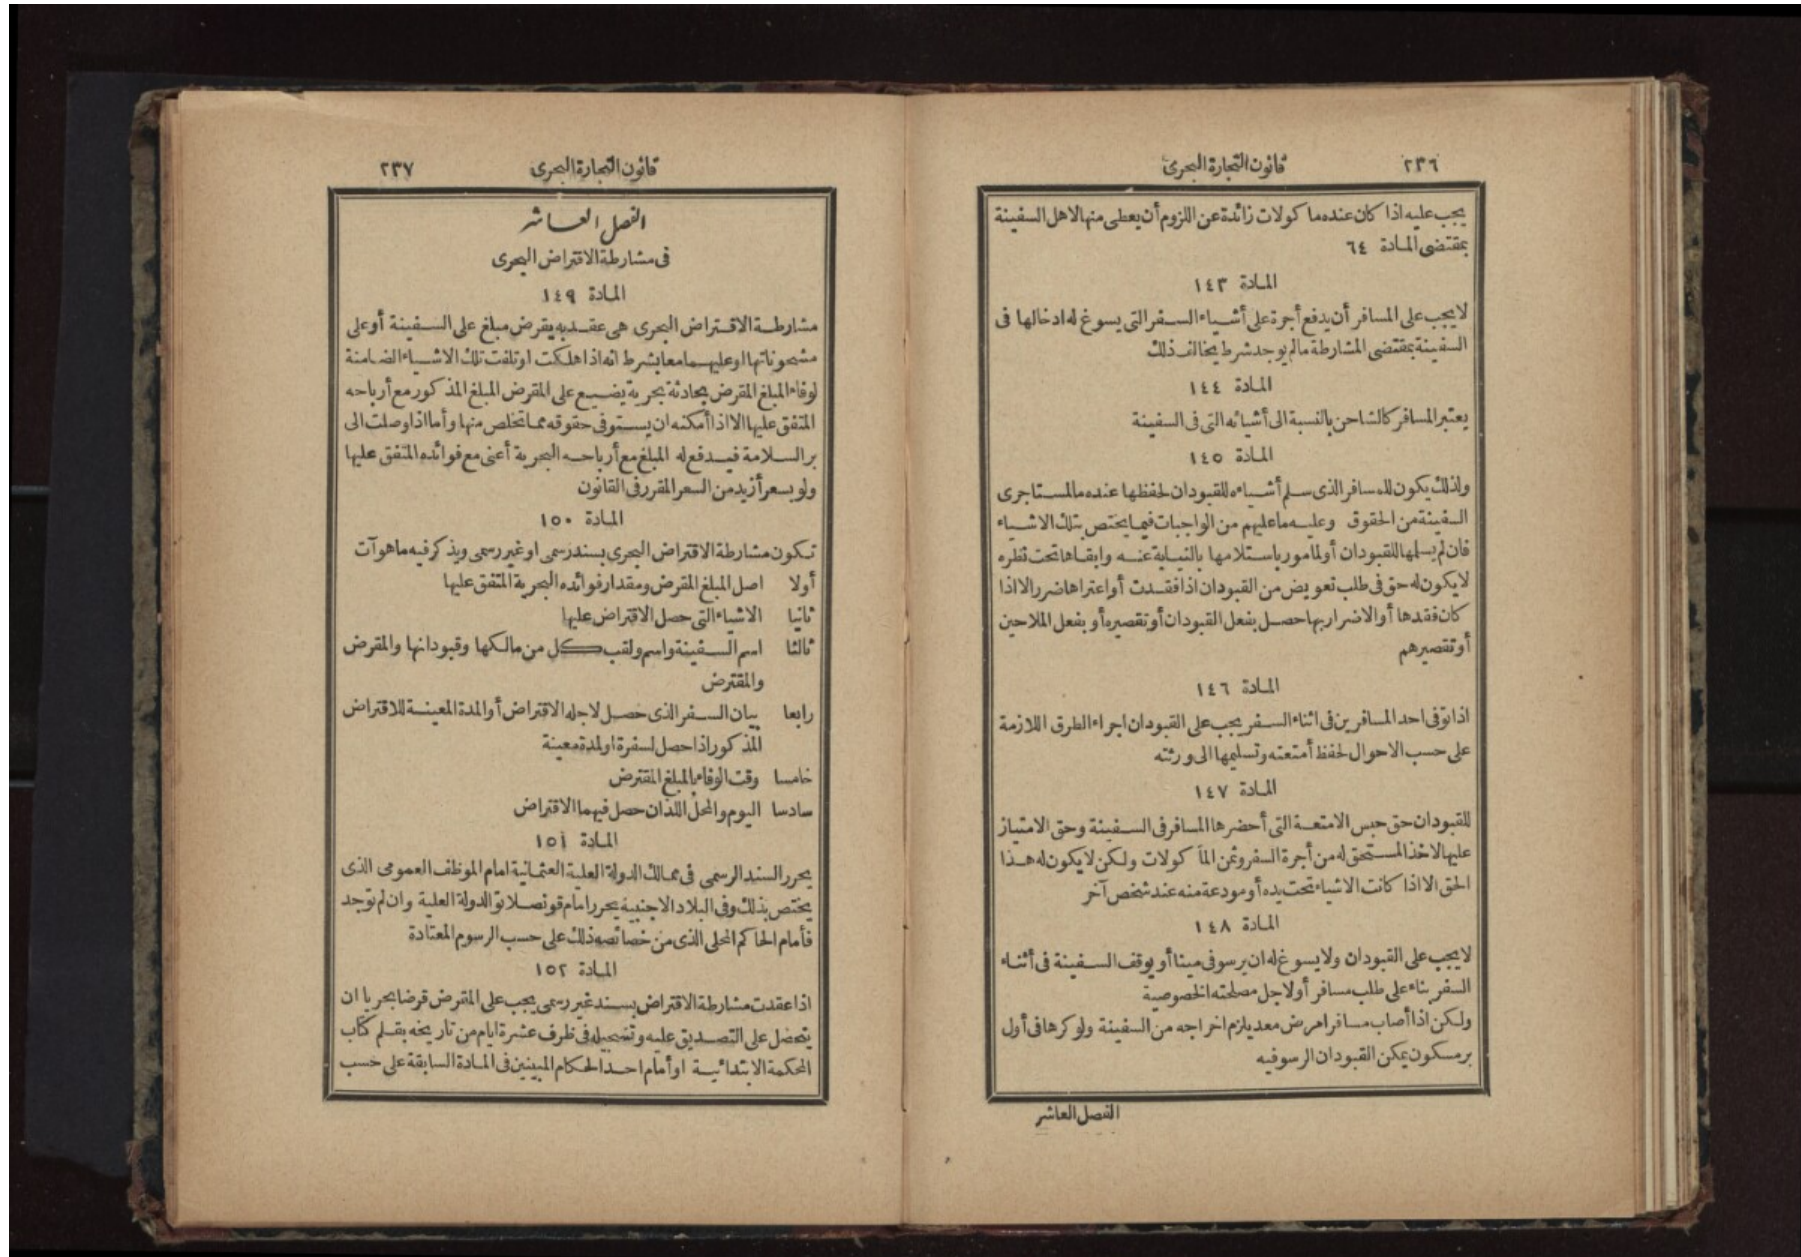 ٢٣٦ قانون التجارة البحرى
يجب عليه اذا كان عنده ما كولات زائدة عن اللزوم أن يعطى منها لاهل السفينة
بمقتضى المادة ٦٤
المادة ١٤٣
لا يجب على المسافر أن يدفع أجرة على أشياء السفر التى يسوغ له ادخالها فى
السفينة بمقتضى المشارطة مالم يوجد شرط يخالف ذلك
المادة ١٤٤
يعتبر المسافر كالشاحن بالنسبة الى أشيائه التى فى السفينة
المادة ١٤٥
ولذلك يكون للمسافر الذى سلم أشياءه للقبودان لحفظها عنده ما لمستاجرى
السفينة من الحقوق وعليه ما عليهم من الواجبات فيما يختص بتلك الاشياء
فان لم يسلمها للقبودان أو لمامور باستلامها بالنيابة عنه وابقاها تحت نظره
لا يكون له حق فى طلب تعويض من القبودان اذا فقدت أو اعتراها ضرر الا اذا
كان فقدها أو الاضرار بها حصل بفعل القبودان أو تقصيره أو بفعل الملاحين
أو تقصيرهم
المادة ١٤٦
اذا توفى احد المسافرين فى اثناء السفر يجب على القبودان اجراء الطرق اللازمة
على حسب الاحوال لحفظ أمتعته وتسليمها الى ورثته
المادة ١٤٧
للقبودان حق حبس الامتعة التى أحضرها المسافر فى السفينة وحق الامتياز
عليها لاخذ المستحق له من أجرة السفر وثمن المآ كولات ولكن لا يكون له هذا
الحق الا اذا كانت الاشياء تحت يده أو مودعة منه عند شخص آخر
المادة ١٤٨
لا يجب على القبودان ولا يسوغ له ان يرسو فى مينا أو يوقف السفينة فى أثناء
السفر بناء على طلب مسافر أو لاجل مصلحته الخصوصية
ولكن اذا أصاب مسافرا مرض معد يلزم اخراجه من السفينة ولو كرها فى أول
بر مسكون يمكن القبودان الرسو فيه
الفصل العاشر
قانون التجارة البحرى ٢٣٧
الفصل العاشر
فى مشارطة الاقتراض البحرى
المادة ١٤٩
مشارطة الاقتراض البحرى هى عقد به يقرض مبلغ على السفينة أو على
مشحوناتها او عليهما معا بشرط انه اذا هلكت او تلفت تلك الاشياء الضامنة
لوفاء المبلغ المقرض بحادثة بحرية يضيع على المقرض المبلغ المذكور مع أرباحه
المتفق عليها الا اذا أمكنه ان يستوفى حقوقه مما تخلص منها وأما اذا وصلت الى
بر السلامة فيدفع له المبلغ مع أرباحه البحرية أعنى مع فوائده المتفق عليها
ولو بسعر أزيد من السعر المقرر فى القانون
المادة ١٥٠
تكون مشارطة الاقتراض البحرى بسند رسمى او غير رسمى ويذكر فيه ما هو آت
أولا اصل المبلغ المقرض ومقدار فوائده البحرية المتفق عليها
ثانيا الاشياء التى حصل الاقتراض عليها
ثالثا اسم السفينة واسم ولقب كل من مالكها وقبودانها والمقرض
والمقترض
رابعا بيان السفر الذى حصل لاجله الاقتراض أو المدة المعينة للاقتراض
المذكور اذا حصل لسفرة او لمدة معينة
خامسا وقت الوفاء بالمبلغ المقترض
سادسا اليوم والمحل اللذان حصل فيهما الاقتراض
المادة ١٥١
يحرر السند الرسمى فى ممالك الدولة العلية العثمانية امام الموظف العمومى الذى
يختص بذلك وفى البلاد الاجنبية يحرر امام قونصلاتو الدولة العلية وان لم توجد
فأمام الحاكم المحلى الذى من خصائصه ذلك على حسب الرسوم المعتادة
المادة ١٥٢
اذا عقدت مشارطة الاقتراض بسند غير رسمى يجب على المقرض قرضا بحريا ان
يتحصل على التصديق عليه وتسجيله فى ظرف عشرة ايام من تاريخه بقلم كتاب
المحكمة الابتدائية او أمام احد الحكام المبينين فى المادة السابقة على حسب